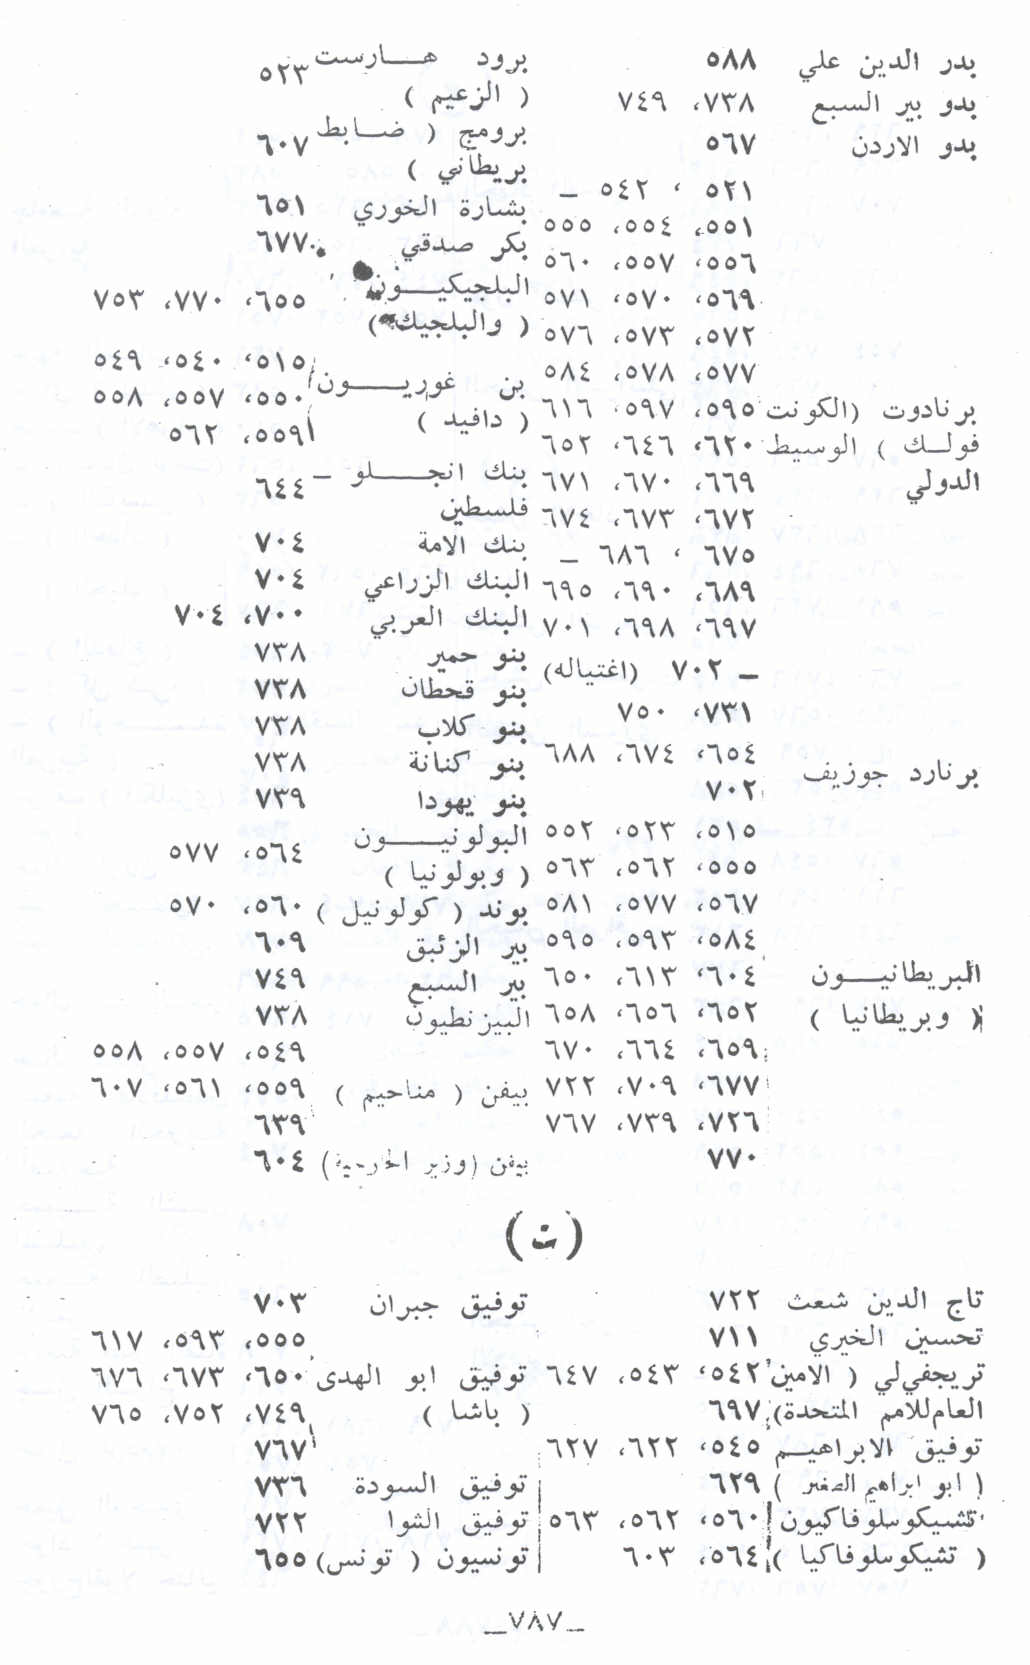 بدر الدين علي ٥٨٨
بدو بير السبع ٧٣٨، ٧٤٩
بدو الاردن ٥٦٧
٥٢١ ، ٥٤٢ –
٥٥١، ٥٥٤، ٥٥٥
٥٥٦، ٥٥٧، ٥٦٠
٥٦٩، ٥٧٠، ٥٧١
٥٧٢، ٥٧٣، ٥٧٦
٥٧٧، ٥٧٨، ٥٨٤
برنادوت (الكونت ٥٩٥، ٥٩٧، ٦١٦
فولك ) الوسيط ٦٢٠، ٦٤٦، ٦٥٢
الدولي ٦٦٩، ٦٧٠، ٦٧١
٦٧٢، ٦٧٣، ٦٧٤
٦٧٥ ، ٦٨٦ –
٦٨٩، ٦٩٠، ٦٩٥
٦٩٧، ٦٩٨، ٧٠١
– ٧٠٢ (اغتياله)
٧٣١، ٧٥٠
برنارد جوزيف ٦٥٤، ٦٧٤، ٦٨٨
٧٠٢
٥١٥، ٥٢٣، ٥٥٢
٥٥٥، ٥٦٢، ٥٦٣
٥٦٧، ٥٧٧، ٥٨١
٥٨٤، ٥٩٣، ٥٩٥
البريطانيون ٦٠٤، ٦١٣، ٦٥٠
( وبريطانيا ) ٦٥٢، ٦٥٦، ٦٥٨
٦٥٩، ٦٦٤، ٦٧٠
٦٧٧، ٧٠٩، ٧٢٢
٧٢٦، ٧٣٩، ٧٦٧
٧٧٠
برود هارست ٥٢٣
( الزعيم )
برومج ( ضابط ٦٠٧
بريطاني )
بشارة الخوري ٦٥١
بكر صدقي ٦٧٧
البلجيكيون ٦٥٥، ٧٧٠، ٧٥٣
( والبلجيك )
بن غوريون ٥١٥، ٥٤٠، ٥٤٩
( دافيد ) ٥٥٠، ٥٥٧، ٥٥٨
٥٥٩، ٥٦٢
بنك انجلو – ٦٤٤
فلسطين
بنك الامة ٧٠٤
البنك الزراعي ٧٠٤
البنك العربي ٧٠٠، ٧٠٤
بنو حمير ٧٣٨
بنو قحطان ٧٣٨
بنو كلاب ٧٣٨
بنو كنانة ٧٣٨
بنو يهودا ٧٣٩
البولونيون ٥٦٤، ٥٧٧
( وبولونيا )
بوند ( كولونيل ) ٥٦٠، ٥٧٠
بير الزئبق ٦٠٩
بير السبع ٧٤٩
البيزنطيون ٧٣٨
٥٤٩، ٥٥٧، ٥٥٨
بيفن ( مناحيم ) ٥٥٩، ٥٦١، ٦٠٧
٦٣٩
بيفن (وزير الخارجية) ٦٠٤
(ت)
تاج الدين شعث ٧٢٢
تحسين الخيري ٧١١
تريجفي لي ( الامين ٥٤٢، ٥٤٣، ٦٤٧
العام للامم المتحدة) ٦٩٧
توفيق الابراهيم ٥٤٥، ٦٢٢، ٦٢٧
( ابو ابراهيم الصغير ) ٦٢٩
تشيكوسلوفاكيون ٥٦٠، ٥٦٢، ٥٦٣
( تشيكوسلوفاكيا ) ٥٦٤، ٦٠٣
توفيق جبران ٧٠٣
٥٥٥، ٥٩٣، ٦١٧
توفيق ابو الهدى ٦٥٠، ٦٧٣، ٦٧٦
( باشا ) ٧٤٩، ٧٥٢، ٧٦٥
٧٦٧
توفيق السودة ٧٣٦
توفيق الشوا ٧٢٢
تونسيون ( تونس) ٦٥٥
_٧٨٧_